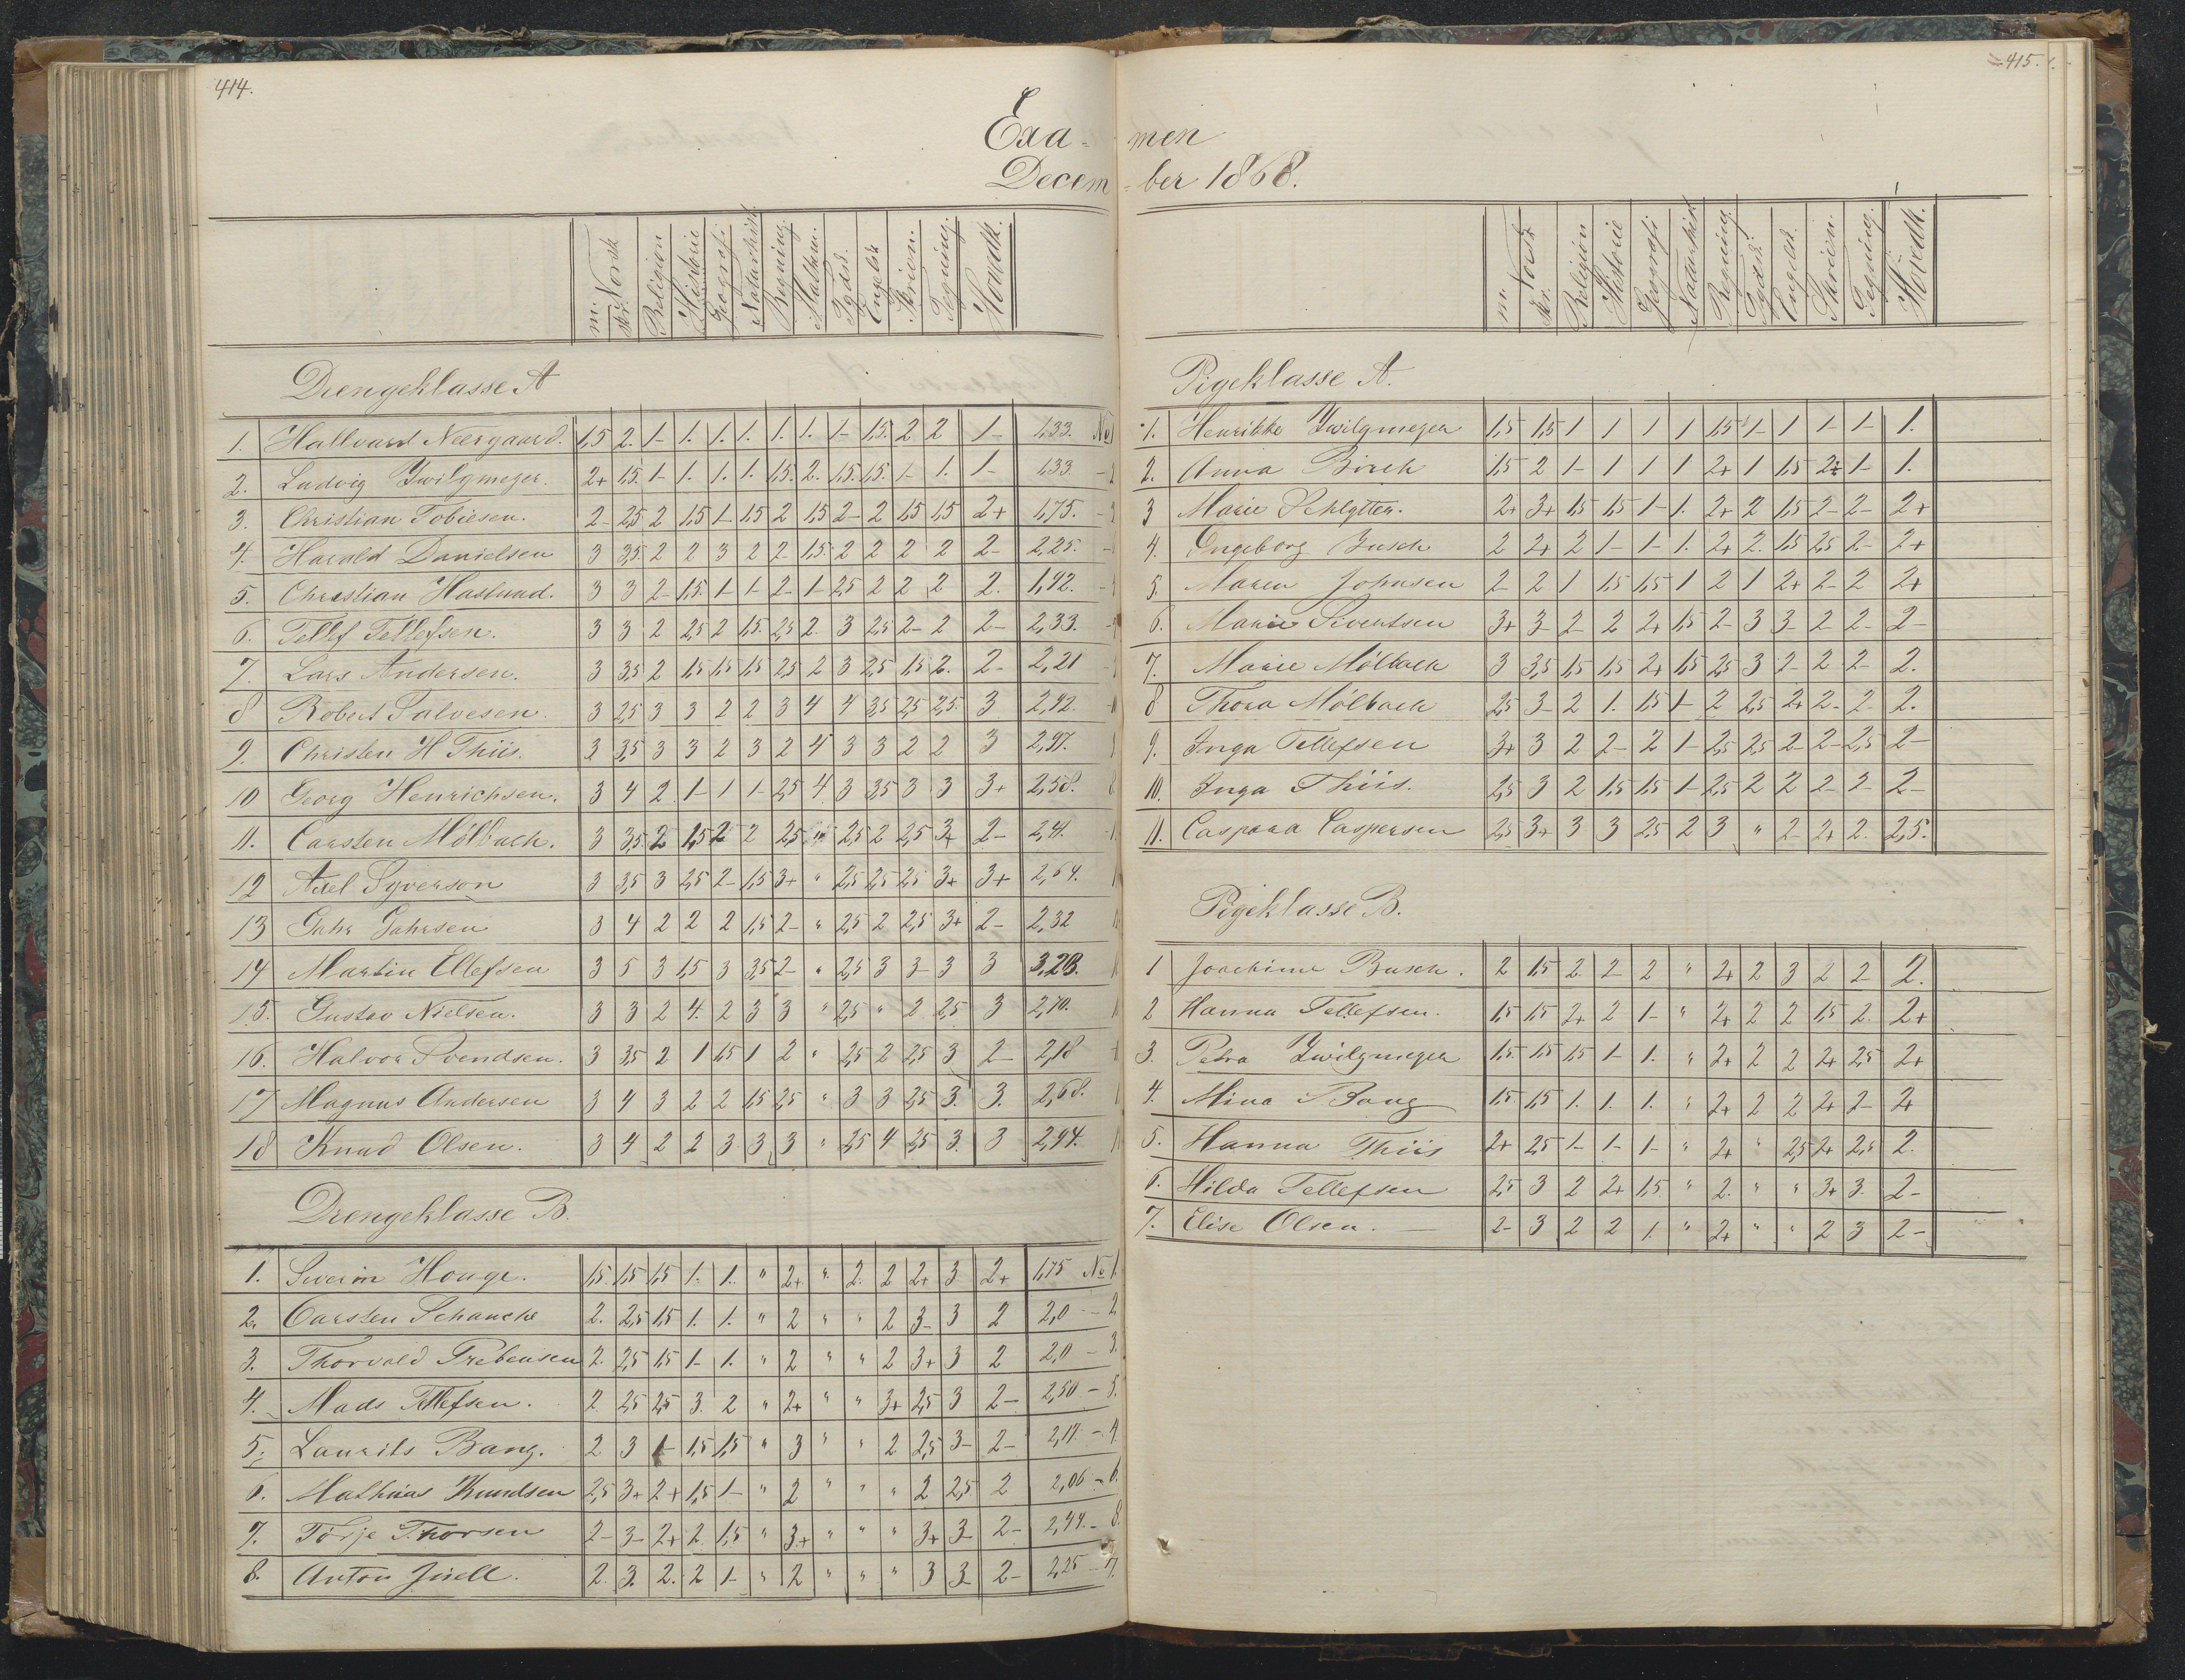 414.
Exa-
Decem
m. Norsk skr. Religion Historie Geografi Naturhist. Regning. Mathem. Tydsk. Engelsk Skrivn. Tegning. Hovedk.
Drengeklasse A
1. Hallvard Neergaard. 1,5 2. 1- 1. 1. 1. 1. 1. 1- 1,5. 2 2 1- 1,33. No 1
2. Ludvig Zwilgmeyer. 2+ 1,5. 1- 1. 1. 1. 1,5. 2. 1,5. 1,5. 1- 1. 1- 1,33. - 2
3. Christian Tobiesen. 2- 2,5 2 1,5 1- 1,5 2 1,5 2- 2 1,5 1,5 2+ 1,75. - 3
4. Harald Danielsen 3 3,5 2 2 3 2 2- 1,5. 2 2 2 2 2- 2,25.
5. Christian Haslund. 3 3 2- 1,5. 1- 1- 2- 1- 2,5 2 2 2 2. 1,92.
6. Tellef Tellefsen. 3 3 2 2,5 2 1,5. 2,5 2. 3 2,5 2- 2 2- 2,33.
7. Lars Andersen. 3 3,5 2 1,5 1,5 1,5 2,5 2 3 2,5 1,5 2. 2- 2,21
8 Robert Salvesen. 3 2,5 3 3 2 2 3 4 4 3,5 2,5 2,5. 3 2,92.
9. Christen H Thiis. 3 3,5 3 3 2 3 2 4 3 3 2 2 3 2,97.
10 Georg Henrichsen. 3 4 2 1- 1 1- 2,5 4 3 3,5 3 3 3+ 2,58.
11. Carsten Mölbach. 3 3,5. 2 1,5 2 2 2,5 " 2,5 2 2,5 3+ 2- 2,41.
12 Axel Syverson 3 3,5 3 2,5 2- 1,5 3+ " 2,5 2,5 2,5 3+ 3+ 2,64.
13 Gahr Gahrsen 3 4 2 2 2 1,5 2- " 2,5 2 2,5 3+ 2- 2,32
14 Martin Ellefsen 3 5 3 1,5 3 3,5 2- " 2,5 3 3- 3 3 3,28.
15. Gustav Nielsen. 3 3 2 4. 2 3 3 " 2,5 " 2 2,5 3 2,70.
16. Halvor Svendsen. 3 3,5 2 1 1,5 1 2 " 2,5 2 2,5 3 2- 2,18
17 Magnus Andersen 3 4 3 2 2 1,5 2,5 " 3 3 2,5 3. 3. 2,68.
18 Knud Olsen. 3 4 2 2 3 3 3 " 2,5 4 2,5 3. 3 2,94.
Drengeklasse B.
1. Severin Houge. 1,5. 1,5 1,5 1. 1. " 2+ " 2. 2 2+ 3 2+ 1,75 No 1.
2. Carsten Schanche 2. 2,5 1,5 1. 1. " 2 " " 2 3- 3 2 2,0 - 2
3. Thorvald Prebensen 2. 2,5 1,5 1- 1. " 2 " " 2 3+ 3 2 2,0 - 3.
4. Mads Tellefsen. 2. 2,5 2,5 3. 2 " 2+ " " 3+ 2,5 3 2- 2,50 - 5.
5. Laurits Bang. 2 3 1- 1,5 1,5 " 3 " " 2 2,5 3- 2- 2,17. - 4
6. Mathias Knudsen 2,5 3+ 2+ 1,5 1- " 2 " " " 2 2,5 2 2,06 - 6.
7. Törje Thorsen 2- 3- 2+ 2. 1,5 " 3+ " " " 3+ 3- 2- 2,44. - 8.
8. Anton Juell. 2. 3. 2. 2 1- " 2 " " " 3 3- 2- 2,25 - 7.
415.
men
-ber 1868.
m. Norsk skr. Religion Historie Geografi Naturhist. Regning. Tydsk. Engelsk. Skrivn. Tegning. Hovedk.
Pigeklasse A.
1. Henrikke Zwilgmeyer 1,5 1,5 1 1 1 1 1,5 1- 1 1- 1- 1.
2. Anna Birch 1,5 2 1- 1 1 1 2+ 1 1,5 2+ 1- 1.
3 Marie Schlytter. 2+ 3+ 1,5 1,5 1- 1. 2+ 2 1,5 2- 2- 2+
4. Ingeborg Busch 2 2+ 2 1- 1- 1. 2+ 2. 1,5 2,5 2- 2+
5. Maren Johnsen 2- 2 1 1,5 1,5 1 2 1 2+ 2- 2 2+
6. Marie Sivertsen 3+ 3- 2- 2 2+ 1,5 2- 3 3- 2 2- 2-
7. Marie Mölbach 3 3,5 1,5 1,5 2+ 1,5 2,5 3 2- 2 2- 2.
8 Thora Mölbach 2,5 3- 2 1. 1,5 1- 2 2,5 2+ 2- 2- 2.
9. Inga Tellefsen 3+ 3 2 2- 2 1- 2,5 2,5 2- 2- 2,5 2-
10. Inga Thiis. 2,5 3 2 1,5 1,5 1- 2,5 2 2 2- 2- 2-
11. Caspara Caspersen 2,5 3+ 3 3 2,5 2 3 " 2- 2+ 2. 2,5.
Pigeklasse B.
1 Joachime Busch. 2 1,5 2. 2- 2 " 2+ 2 3 2 2 2.
2 Hanna Tellefsen. 1,5 1,5 2+ 2 1- " 2+ 2 2 1,5 2. 2+
3. Petra Zwilgmeyer 1,5. 1,5 1,5 1- 1. " 2+ 2 2 2+ 2,5 2+
4. Mina Bang 1,5. 1,5 1. 1. 1. " 2+ 2 2 2+ 2- 2+
5. Hanna Thiis 2+ 2,5 1- 1- 1- " 2+ " 2,5 2+ 2,5 2.
6. Hilda Tellefsen 2,5 3 2 2+ 1,5. " 2. " " 3+ 3. 2-
7. Elise Olsen. 2- 3 2 2 1. " 2+ " " 2 3 2-